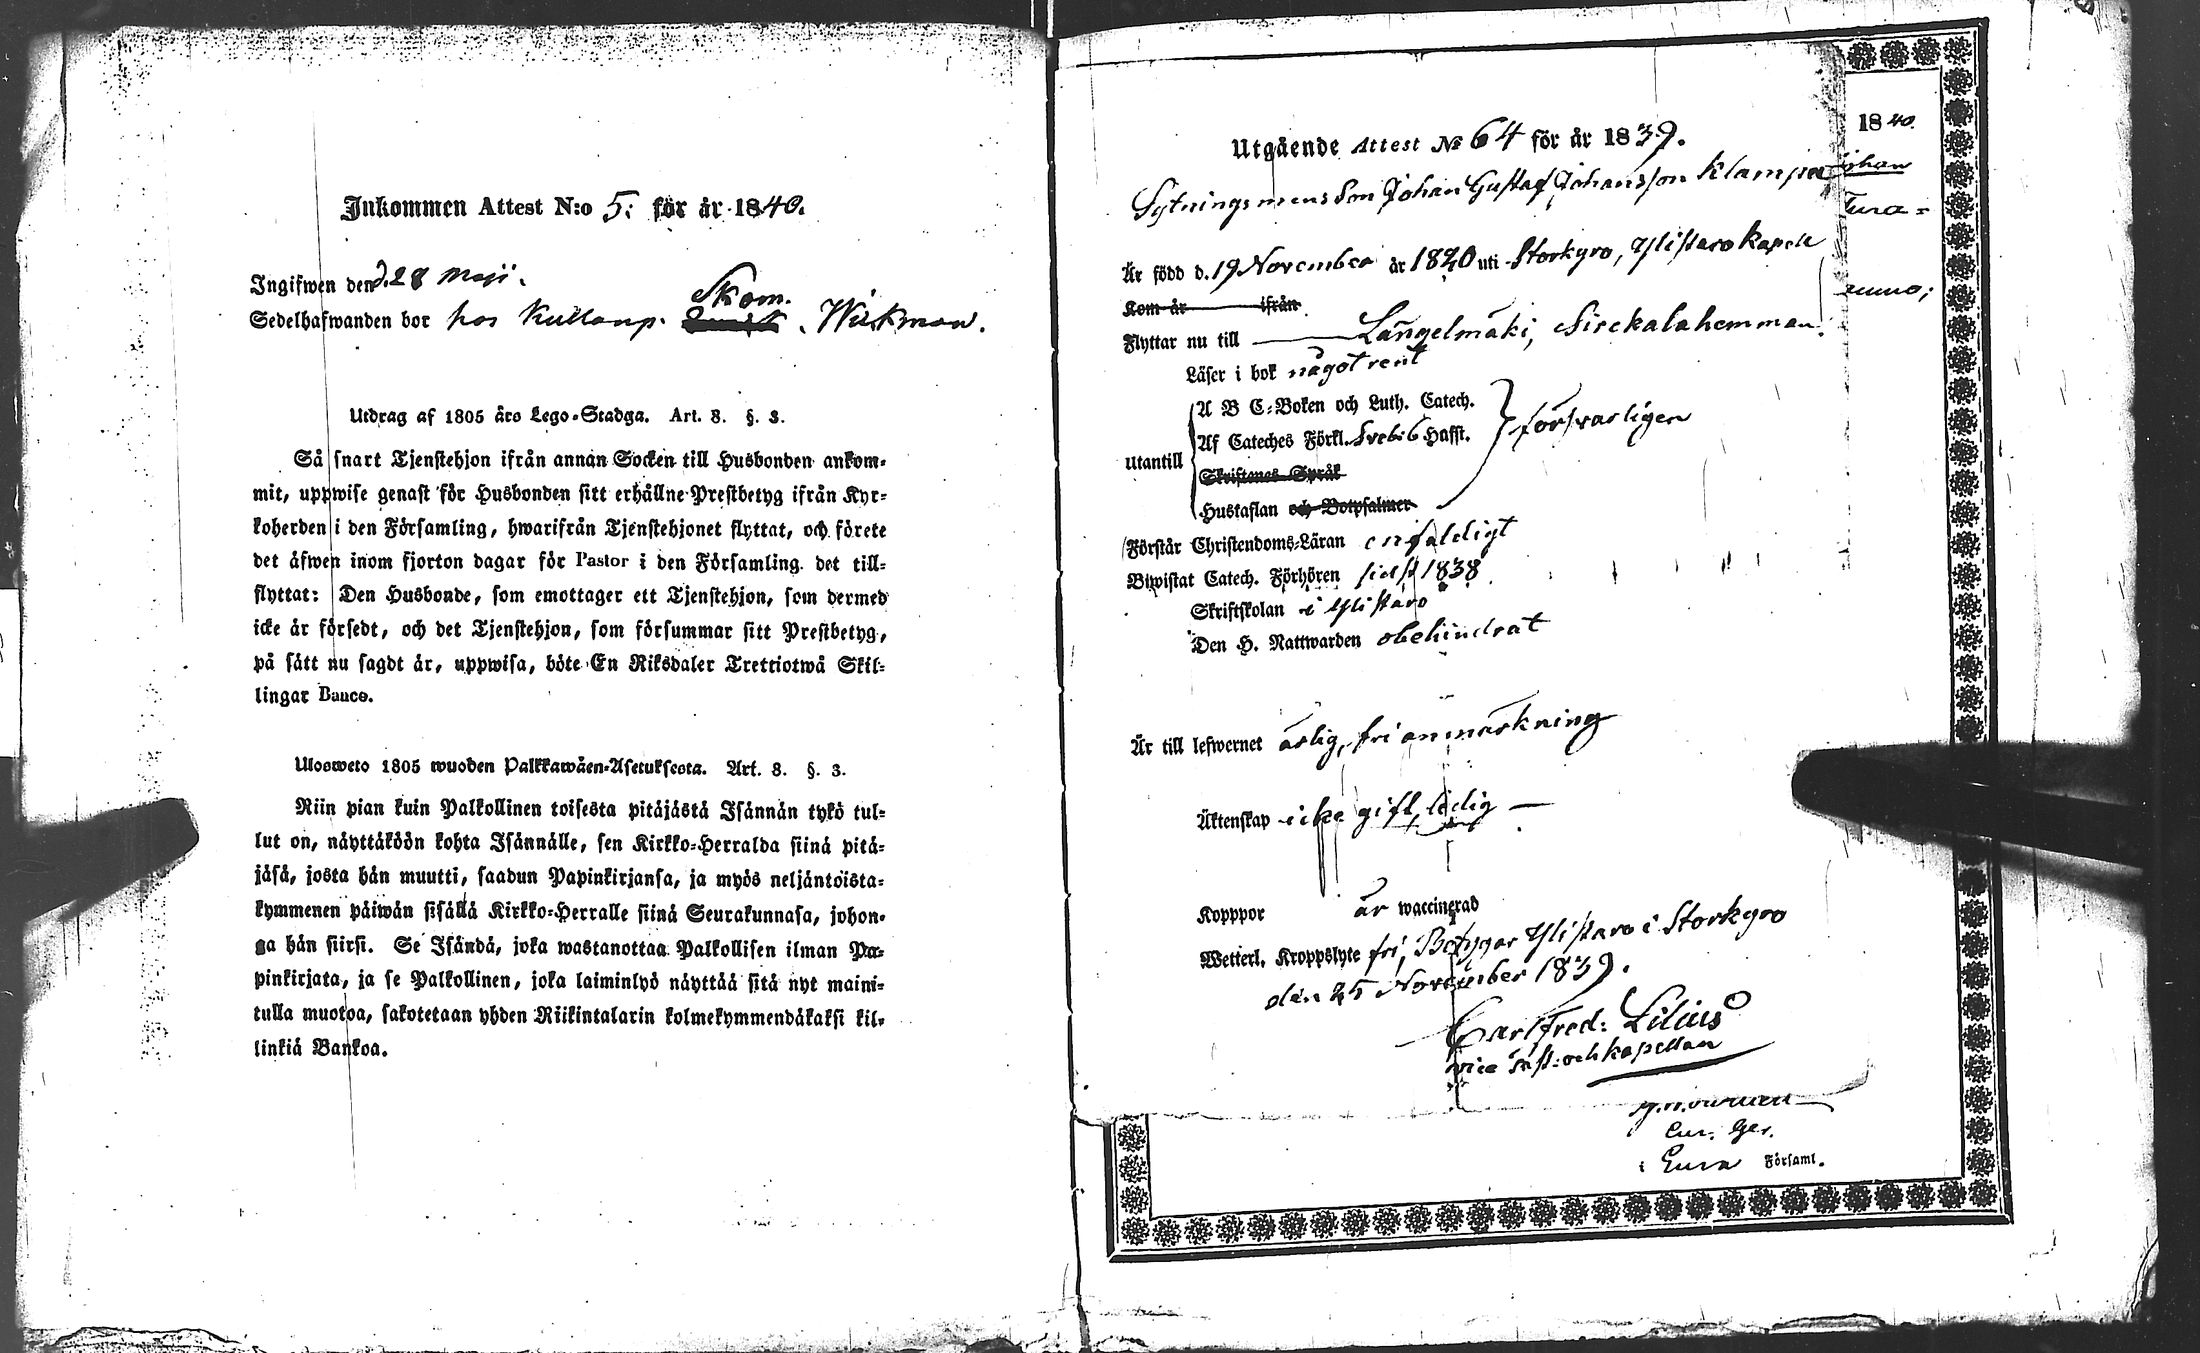 Inkommen Attest N:o 5: för år 1840.
Ingifwen den d. 28 Maji.
Skom.
Sedelhafwanden bor hos Kullanp. Wickman.
Utdrag af 1805 års Lego-Stadga. Art. 8. §. 3.
Så snart Tjenstehjon ifrån annan Socken till Husbonden ankom-
mit, uppwise genast för Husbonden sitt erhållne Prestbetyg ifrån Kyr-
koherden i den Församling, hwarifrån Tjenstehjonet flyttat, och förete
det äfwen inom fjorton dagar för Pastor i den Församling det till-
flyttat: Den Husbonde, som emottager ett Tjenstehjon, som dermed
icke är försedt, och det Tjenstehjon, som försummar sitt Prestbetyg,
på sätt nu sagdt är, uppwisa, böte En Riksdaler Trettiotwå Skil-
lingar Banco.
Ulosweto 1805 wuoden Palkkawäen-Asetuksesta. Art. 8. §. 3.
Niin pian kuin Palkollinen toisesta pitäjästä Isännän tykö tul-
lut on, näyttäköön kohta Isännälle, sen Kirkko-Herralda siinä pitä-
jäsä, josta hän muutti, saadun Papinkirjansa, ja myös neljäntoista-
kymmenen päiwän sisällä Kirkko-Herralle siinä Seurakunnasa, johon-
ga hän siirsi. Se Isändä, joka wastanottaa Palkollisen ilman Pa-
pinkirjata, ja se Palkollinen, joka laiminlyö näyttää sitä nyt maini-
tulla muotoa, sakotetaan yhden Riikintalarin kolmekymmendäkaksi kil-
linkiä Bankoa.
Utgående Attest No 64 för år 1839.
Sytningsmans Son Johan Gustaf Johansson Klampar
Är född d. 19 November år 1820 uti Storkyro, Ylistaro Kapell
Kom år ifrån
Flyttar nu till Längelmäki, Sirckala hemman.
Läser i bok något rent
A B C-Boken och Luth. Catech.
försvarligen
Utantill
Af Cateches Förkl. Svebi 6 Hafst.
Skriftenes Språk
Hustaflan och Botpsalmer
Förstår Christendoms-Läran enfaldigt
Biwistat Catech. Förhören sidst 1838
Skriftskolan i Ylistaro
Den H. Nattwarden obehindrat
Är till lefwernet ärlig, fri anmärkning
Äktenskap icke gift, ledig
Kopppor är waccinerad
Wetterl. Kroppslyte fri, Betygar Ylistaro i Storkyro
den 25 November 1839.
Carl Fred: Lilius
vice Past: och kapellan
1840.
Johan
Eura
i Eura Församl.